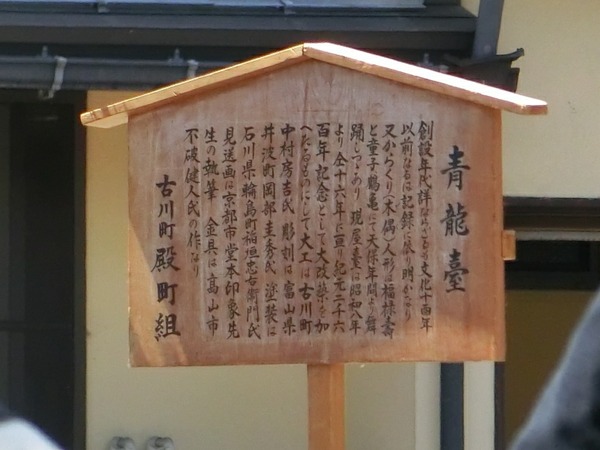 青龍臺
創設年代詳ならざるも文化十四年
以前なるは記録に依り明かなり
又からくり(木偶)人形は福禄壽
と童子鶴亀にて天保年間より舞
踊しつゝあり 現屋臺は昭和八年
より仝十六年に亘り紀元二千六
百年記念として大改築を加
へたるものにして大工は古川町
中村房吉氏 彫刻は富山県
井波町岡部圭秀氏 塗装は
石川県輪島町稲垣忠右衛門氏
見送画は京都市堂本印象先
生の執筆 金具は高山市
不破健人氏の作なり
古川町 殿町組